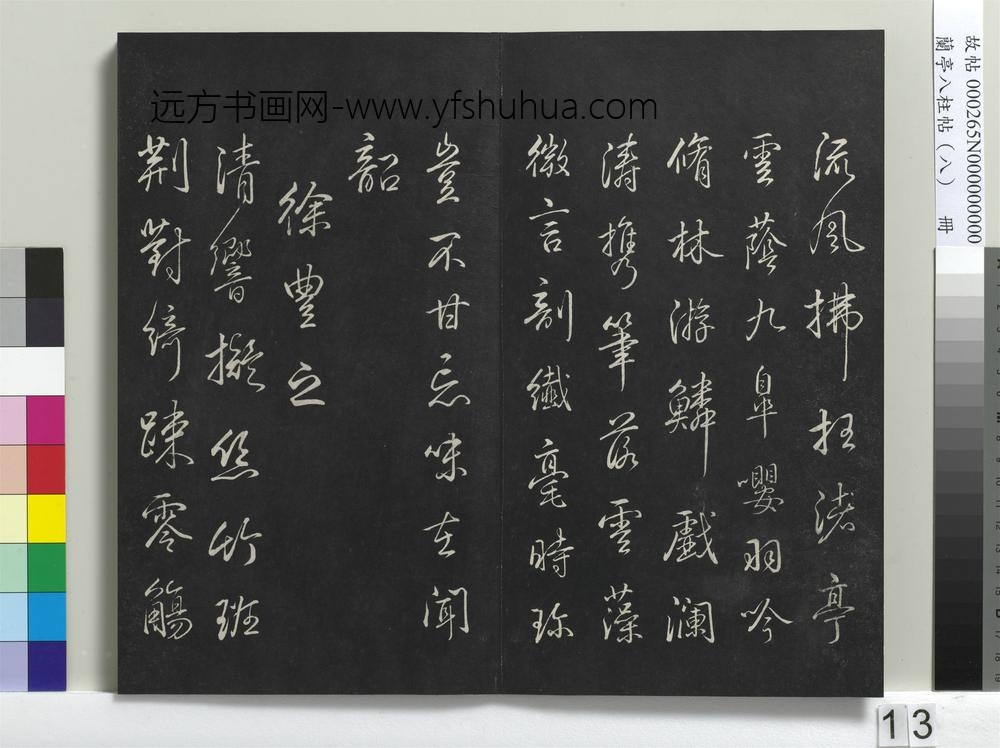 远方书画网-www.yfshuhua.com
流風拂枉渚亭
雲蔭九皐嚶羽吟
脩林游鱗戲瀾
濤携筆落雲藻
微言剖纖毫時珍
豈不甘忘味在聞
韶
徐豊之
清響擬絲竹班
荆對綺疎零觴
故帖 000265N000000000
蘭亭八柱帖（八） 冊
13